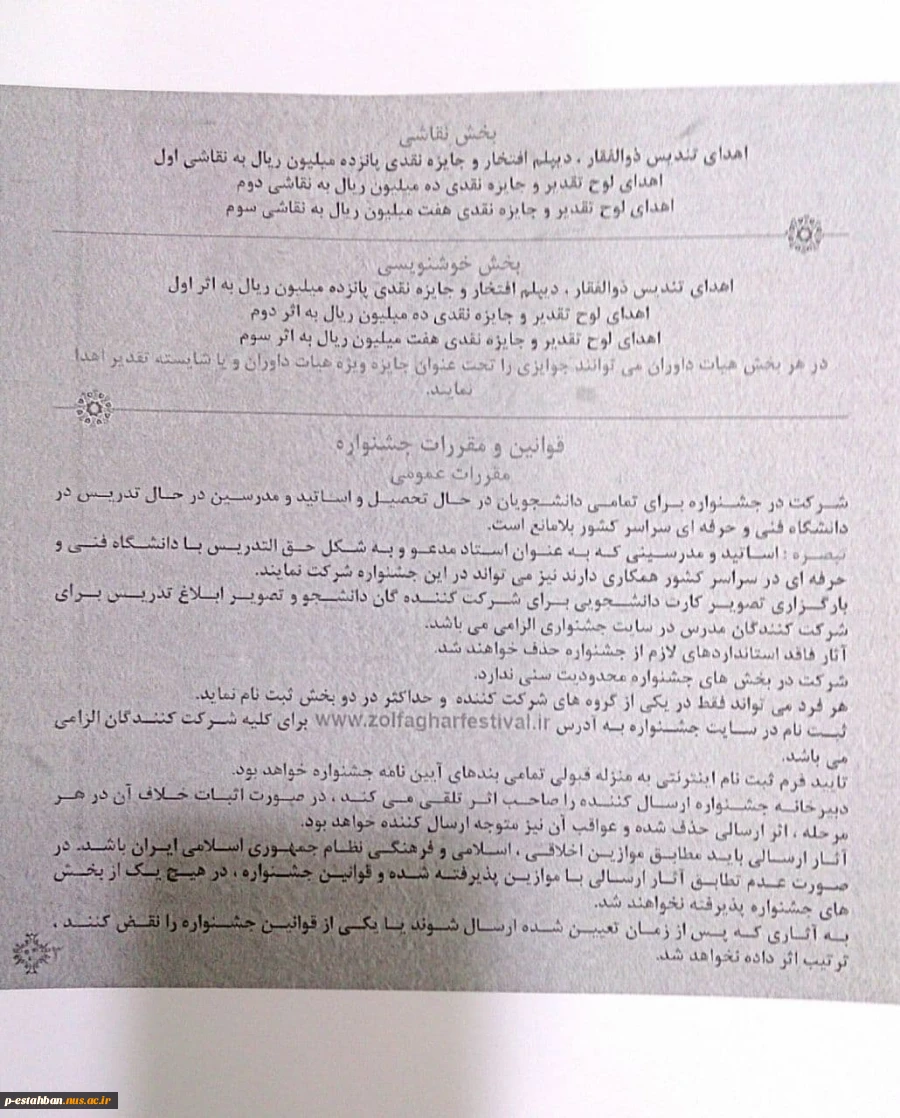 بخش نقاشی
اهدای تندیس ذوالفقار ، دیپلم افتخار و جایزه نقدی پانزده میلیون ریال به نقاشی اول
اهدای لوح تقدیر و جایزه نقدی ده میلیون ریال به نقاشی دوم
اهدای لوح تقدیر و جایزه نقدی هفت میلیون ریال به نقاشی سوم
بخش خوشنویسی
اهدای تندیس ذوالفقار ، دیپلم افتخار و جایزه نقدی پانزده میلیون ریال به اثر اول
اهدای لوح تقدیر و جایزه نقدی ده میلیون ریال به اثر دوم
اهدای لوح تقدیر و جایزه نقدی هفت میلیون ریال به اثر سوم
در هر بخش هیات داوران می توانند جوایزی را تحت عنوان جایزه ویژه هیات داوران و یا شایسته تقدیر اهدا
نمایند.
قوانین و مقررات جشنواره
مقررات عمومی
شرکت در جشنواره برای تمامی دانشجویان در حال تحصیل و اساتید و مدرسین در حال تدریس در
دانشگاه فنی و حرفه ای سراسر کشور بلامانع است.
تبصره : اساتید و مدرسینی که به عنوان استاد مدعو و به شکل حق التدریس با دانشگاه فنی و
حرفه ای در سراسر کشور همکاری دارند نیز می تواند در این جشنواره شرکت نمایند.
بارگزاری تصویر کارت دانشجویی برای شرکت کننده گان دانشجو و تصویر ابلاغ تدریس برای
شرکت کنندگان مدرس در سایت جشنواری الزامی می باشد.
آثار فاقد استانداردهای لازم از جشنواره حذف خواهند شد.
شرکت در بخش های جشنواره محدودیت سنی ندارد.
هر فرد می تواند فقط در یکی از گروه های شرکت کننده و حداکثر در دو بخش ثبت نام نماید.
ثبت نام در سایت جشنواره به آدرس www.zolfagharfestival.ir برای کلیه شرکت کنندگان الزامی
می باشد.
تایید فرم ثبت نام اینترنتی به منزله قبولی تمامی بندهای آیین نامه جشنواره خواهد بود.
دبیرخانه جشنواره ارسال کننده را صاحب اثر تلقی می کند ، در صورت اثبات خلاف آن در هر
مرحله ، اثر ارسالی حذف شده و عواقب آن نیز متوجه ارسال کننده خواهد بود.
آثار ارسالی باید مطابق موازین اخلاقی ، اسلامی و فرهنگی نظام جمهوری اسلامی ایران باشد. در
صورت عدم تطابق آثار ارسالی با موازین پذیرفته شده و قوانین جشنواره ، در هیچ یک از بخش
های جشنواره پذیرفته نخواهند شد.
به آثاری که پس از زمان تعیین شده ارسال شوند یا یکی از قوانین جشنواره را نقض کنند ،
ترتیب اثر داده نخواهد شد.
p-estahban.nus.ac.ir